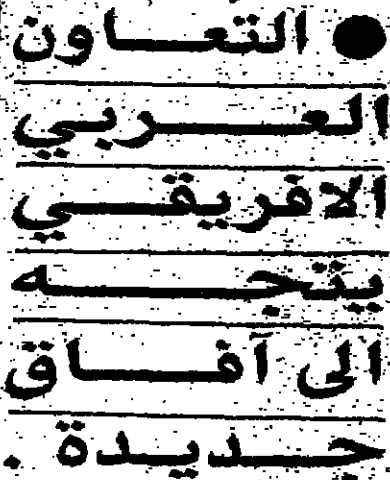 ● التعاون
العربي
الافريقي
يتجه
الى آفاق
جديدة .